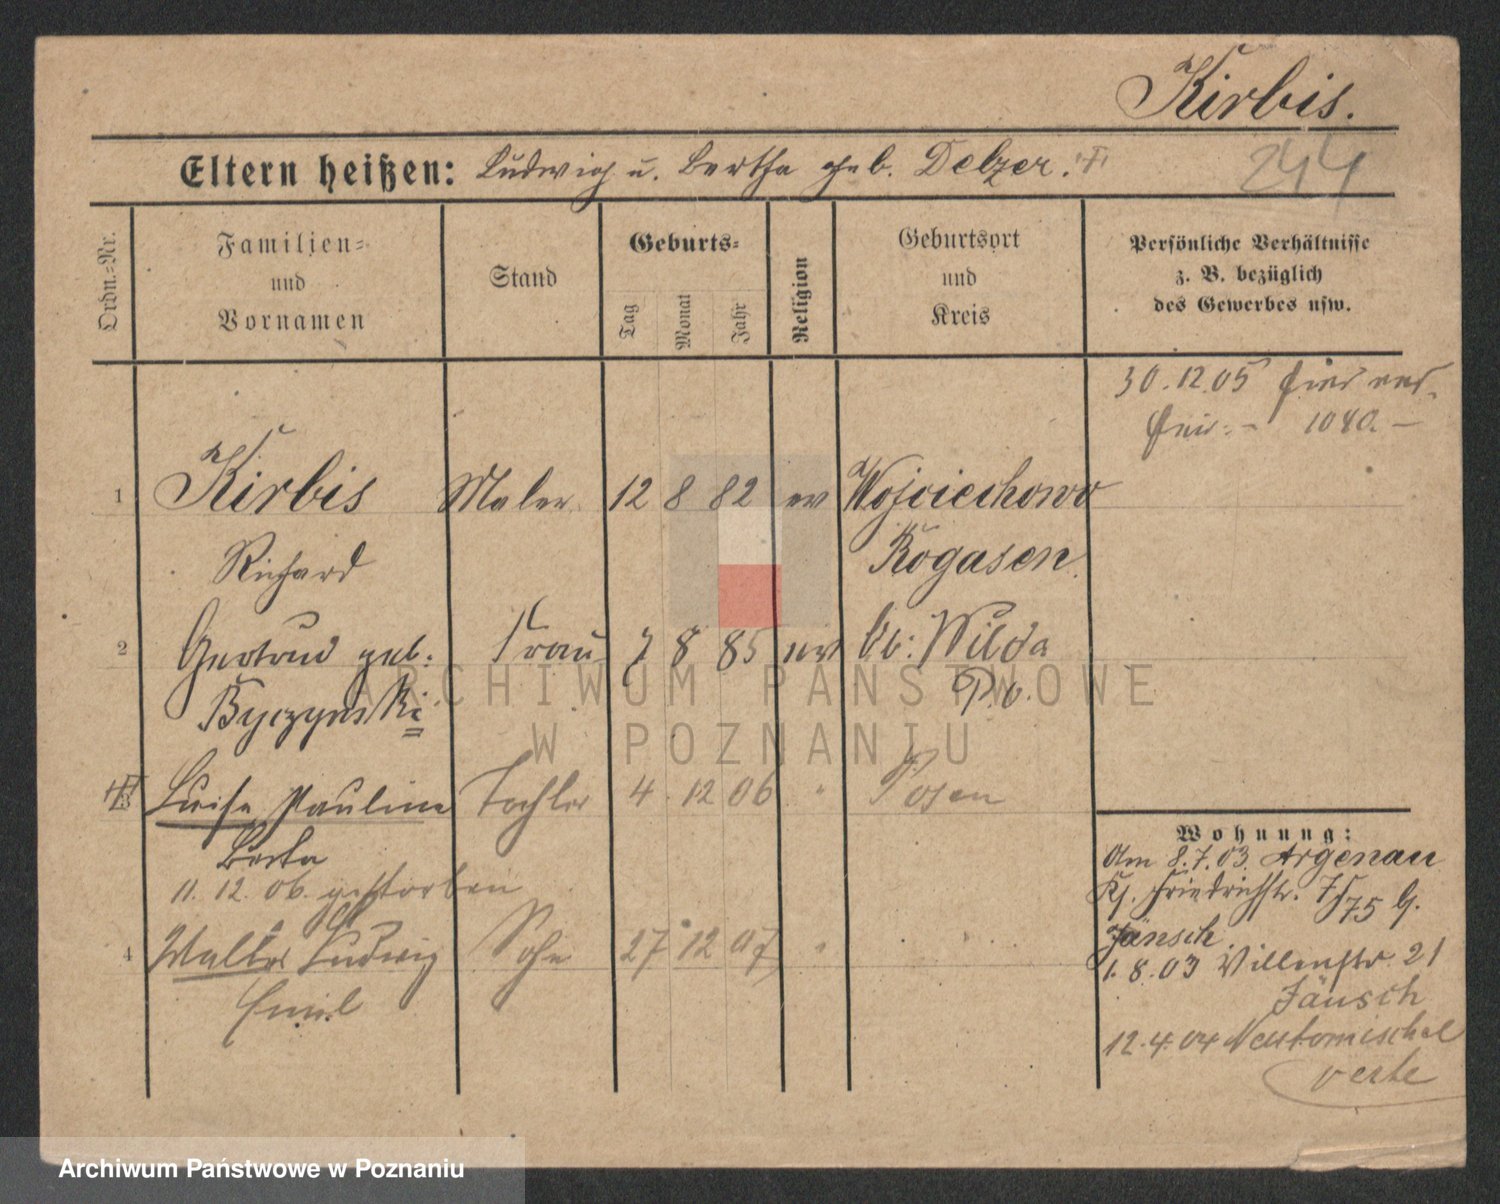 Kirbis.
Eltern heißen: Ludwig u. Bertha geb. Delzer.
244
Ordn.-Nr.
Familien-
und
Vornamen
Stand
Geburts-
Tag
Monat
Jahr
Religion
Geburtsort
und
Kreis
Persönliche Verhältnisse
z. B. bezüglich
des Gewerbes usw.
30.12.05
1040.-
1 Kirbis Maler 12 8 82 ev Wojciechowo
Richard Rogasen
2 Gertrud geb. Frau 7 8 85 Wilda
Byczynski P. o.
3 Luise Pauline Tochter 4 12 06 " Posen
Berta
11. 12. 06. gestorben
4 Walter Ludwig Sohn 27 12 07 "
Emil
Wohnung:
Am 8.7.03 Argenau
Friedrichstr. 75
Jänsch
1.8.03 Villenstr. 21
Jänsch
12.4.04 Neutomischel
ARCHIWUM PAŃSTWOWE
W POZNANIU
Archiwum Państwowe w Poznaniu